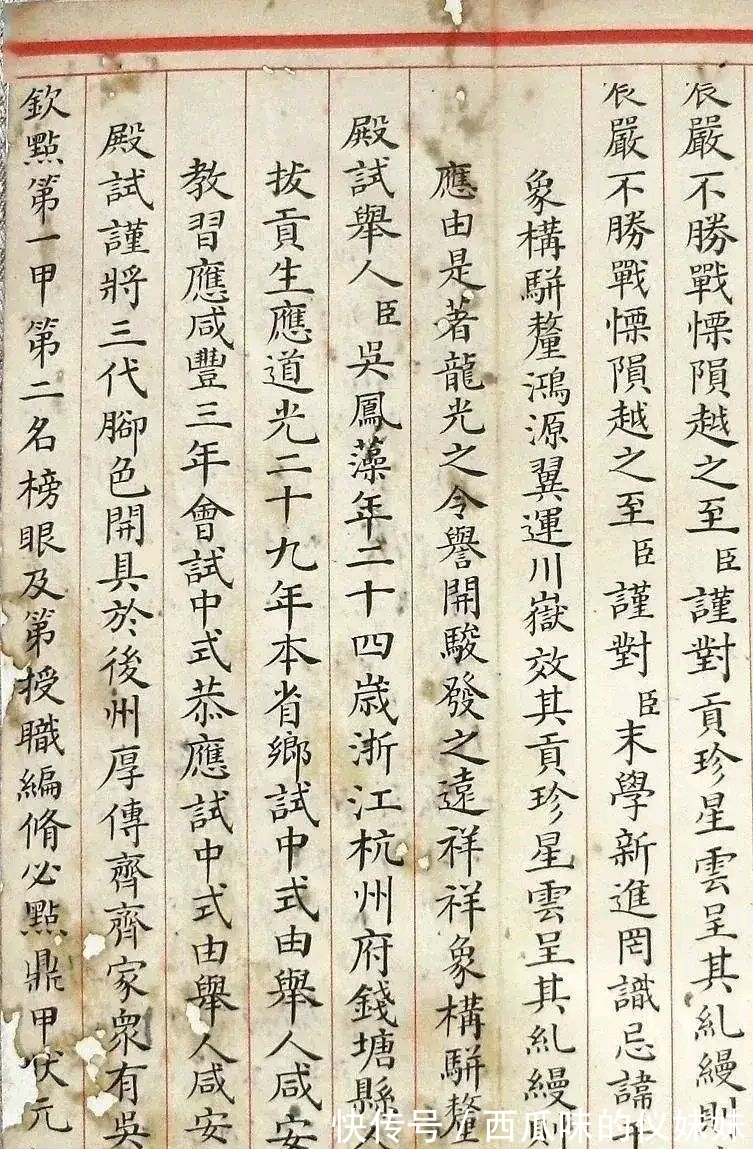 宸嚴不勝戰慄隕越之至臣謹對貢珍星雲呈其糺縵則
宸嚴不勝戰慄隕越之至臣謹對臣末學新進罔識忌諱干
象構駢釐鴻源翼運川嶽效其貢珍星雲呈其糺縵則
應由是著龍光之令譽開駿發之遠祥祥象構駢釐
殿試舉人臣吳鳳藻年二十四歲浙江杭州府錢塘縣人
拔貢生應道光二十九年本省鄉試中式由舉人咸安
教習應咸豐三年會試中式恭應試中式由舉人咸安
殿試謹將三代腳色開具於後州厚傳齊齊家眾有吳
欽點第一甲第二名榜眼及第授職編脩必點鼎甲狀元
快传号/西瓜味的仪妹妹